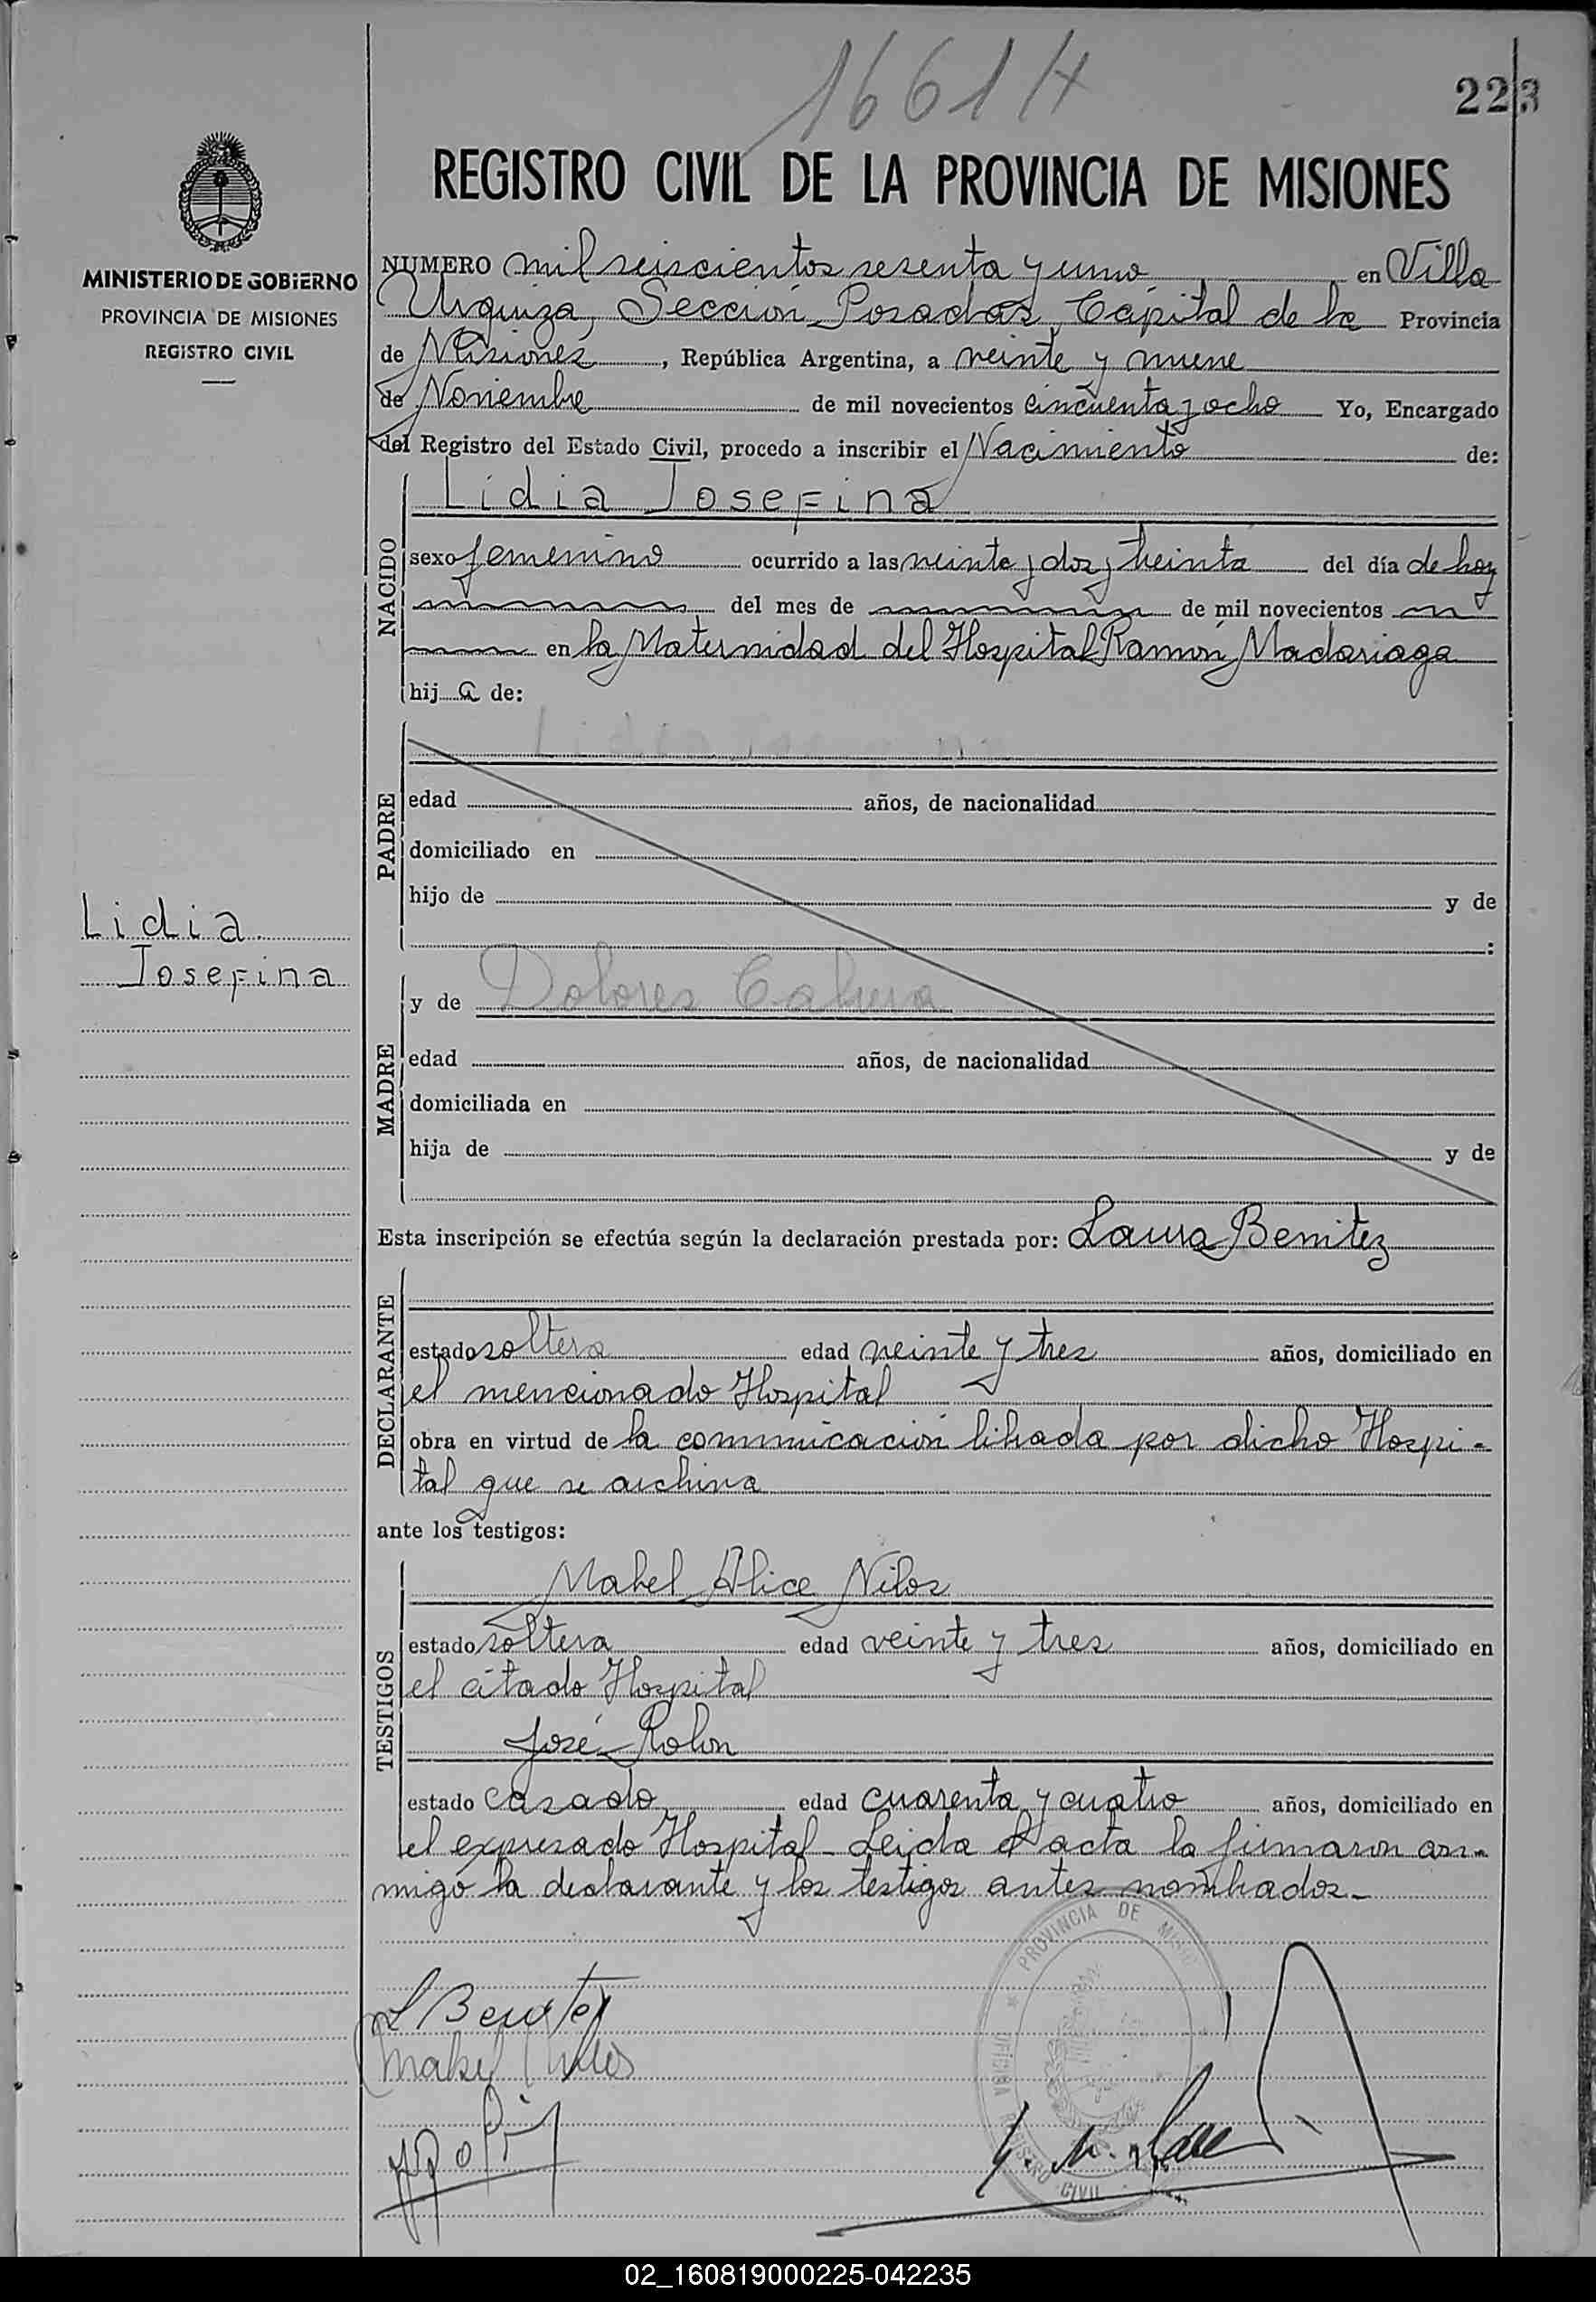 1661 H
223
REGISTRO CIVIL DE LA PROVINCIA DE MISIONES
MINISTERIO DE GOBIERNO
PROVINCIA DE MISIONES
REGISTRO CIVIL
NUMERO mil seiscientos sesenta y uno en Villa
Urquiza, Sección Posadas, Capital de la Provincia
de Misiones, República Argentina, a veinte y nueve
de Noviembre de mil novecientos cincuenta y ocho Yo, Encargado
del Registro del Estado Civil, procedo a inscribir el Nacimiento de:
Lidia Josefina
NACIDO
sexo femenino ocurrido a las veinte y dos y treinta del día de hoy
del mes de de mil novecientos
en la Maternidad del Hospital Ramón Madariaga
hij a de:
PADRE
edad años, de nacionalidad
domiciliado en
hijo de y de
:
Lidia
Josefina
y de Dolores Cabrera
MADRE
edad años, de nacionalidad
domiciliada en
hija de y de
Esta inscripción se efectúa según la declaración prestada por: Laura Benitez
DECLARANTE
estado soltera edad veinte y tres años, domiciliado en
el mencionado Hospital
obra en virtud de la comunicación librada por dicho Hospi-
tal que se archiva
ante los testigos:
Mabel Alice Nilos
TESTIGOS
estado soltera edad veinte y tres años, domiciliado en
el citado Hospital
José Rolon
estado casado edad cuarenta y cuatro años, domiciliado en
el expresado Hospital - Leida el acta la firmaron con-
migo la declarante y los testigos antes nombrados.-
L Benitez
Mabel Nilos
PROVINCIA DE
REGISTRO CIVIL
02_160819000225-042235